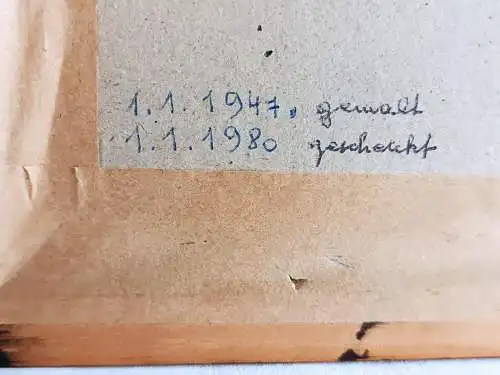 1.1.1947, gemalt
1.1.1980 geschenkt